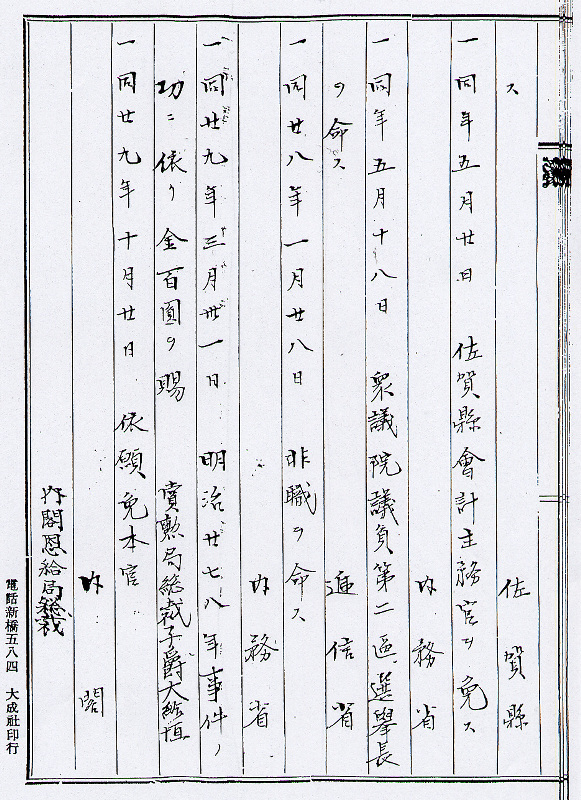 ス 佐賀縣
一同年五月廿日 佐賀縣會計主務官ヲ免ス
内務省
一同年五月十八日 衆議院議員第二區選擧長
ヲ命ス 逓信省
一同廿八年一月廿八日 非職ヲ命ス
内務省
一同廿九年三月卅一日 明治廿七八年事件ノ
功ニ依リ金百圓ヲ賜 賞勲局総裁子爵大給恒
一同廿九年十月廿日 依願免本官
内閣
内閣恩給局
電話新橋五八四 大成社印行